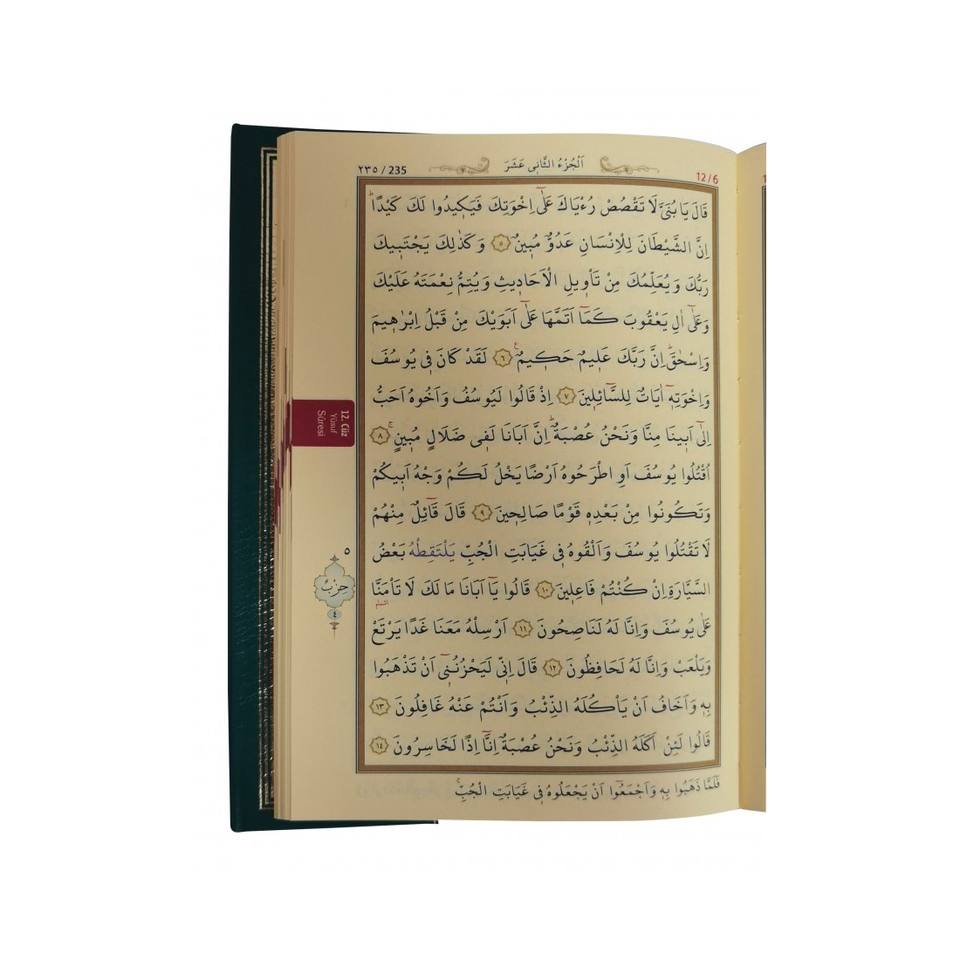 ٢٣٥ / 235
اَلْجُزْءُ الثَّانِي عَشَرَ
12/6
قَالَ يَا بُنَيَّ لَا تَقْصُصْ رُءْيَاكَ عَلٰٓى اِخْوَتِكَ فَيَك۪يدُوا لَكَ كَيْدًاۜ
اِنَّ الشَّيْطَانَ لِلْاِنْسَانِ عَدُوٌّ مُب۪ينٌ ﴿٥﴾ وَكَذٰلِكَ يَجْتَب۪يكَ
رَبُّكَ وَيُعَلِّمُكَ مِنْ تَأْو۪يلِ الْاَحَاد۪يثِ وَيُتِمُّ نِعْمَتَهُ عَلَيْكَ
وَعَلٰٓى اٰلِ يَعْقُوبَ كَمَٓا اَتَمَّهَا عَلٰٓى اَبَوَيْكَ مِنْ قَبْلُ اِبْرٰه۪يمَ
وَاِسْحٰقَۜ اِنَّ رَبَّكَ عَل۪يمٌ حَك۪يمٌ۟ ﴿٦﴾ لَقَدْ كَانَ ف۪ي يُوسُفَ
وَاِخْوَتِه۪ٓ اٰيَاتٌ لِلسَّٓائِل۪ينَ ﴿٧﴾ اِذْ قَالُوا لَيُوسُفُ وَاَخُوهُ اَحَبُّ
اِلٰٓى اَب۪ينَا مِنَّا وَنَحْنُ عُصْبَةٌۜ اِنَّ اَبَانَا لَف۪ي ضَلَالٍ مُب۪ينٍۚ ﴿٨﴾
اُقْتُلُوا يُوسُفَ اَوِ اطْرَحُوهُ اَرْضًا يَخْلُ لَكُمْ وَجْهُ اَب۪يكُمْ
وَتَكُونُوا مِنْ بَعْدِه۪ قَوْمًا صَالِح۪ينَ ﴿٩﴾ قَالَ قَٓائِلٌ مِنْهُمْ
لَا تَقْتُلُوا يُوسُفَ وَاَلْقُوهُ ف۪ي غَيَابَتِ الْجُبِّ يَلْتَقِطْهُ بَعْضُ
السَّيَّارَةِ اِنْ كُنْتُمْ فَاعِل۪ينَ ﴿١٠﴾ قَالُوا يَٓا اَبَانَا مَا لَكَ لَا تَأْمَنَّا
اشمام
عَلٰى يُوسُفَ وَاِنَّا لَهُ لَنَاصِحُونَ ﴿١١﴾ اَرْسِلْهُ مَعَنَا غَدًا يَرْتَعْ
وَيَلْعَبْ وَاِنَّا لَهُ لَحَافِظُونَ ﴿١٢﴾ قَالَ اِنّ۪ي لَيَحْزُنُن۪ٓي اَنْ تَذْهَبُوا
بِه۪ وَاَخَافُ اَنْ يَأْكُلَهُ الذِّئْبُ وَاَنْتُمْ عَنْهُ غَافِلُونَ ﴿١٣﴾
قَالُوا لَئِنْ اَكَلَهُ الذِّئْبُ وَنَحْنُ عُصْبَةٌ اِنَّٓا اِذًا لَخَاسِرُونَ ﴿١٤﴾
فَلَمَّا ذَهَبُوا بِه۪ وَاَجْمَعُٓوا اَنْ يَجْعَلُوهُ ف۪ي غَيَابَتِ الْجُبِّۚ
12. Cüz
Yûsuf
Sûresi
٥
حِزْبٌ
٤